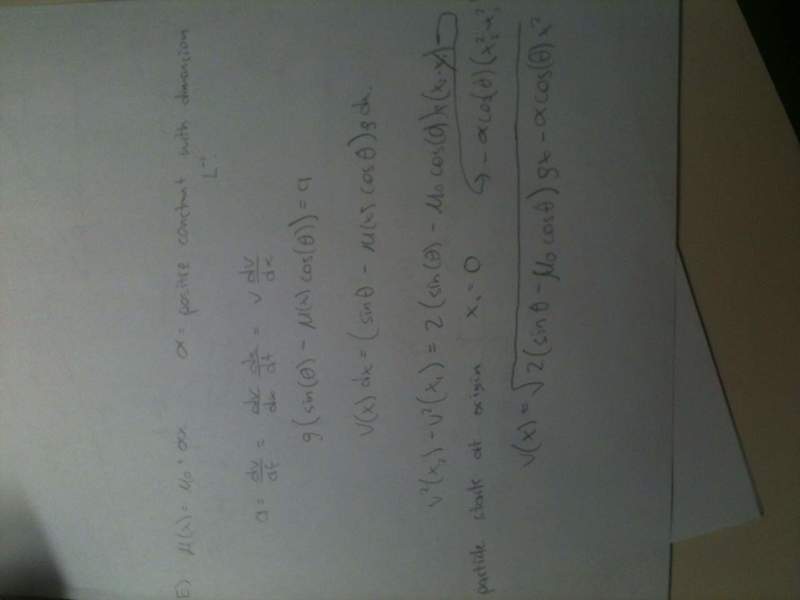 E) μ(x) = μ₀ + αx α = positive constant with dimension L⁻¹.
a = dv/dt = dv/dx dx/dt = v dv/dx
g(sin(θ) - μ(x) cos(θ)) = a
V(x) dx = (sinθ - μ(x) cosθ) g dx.
V²(x₂) - V²(x₁) = 2(sin(θ) - μ₀ cos(θ)) (x₂-x₁)
↳ - α cos(θ)(x₂²-x₁²)
particle starts at origin x₁ = 0
V(x) = √2(sinθ - μ₀ cosθ) gx - α cos(θ) x²